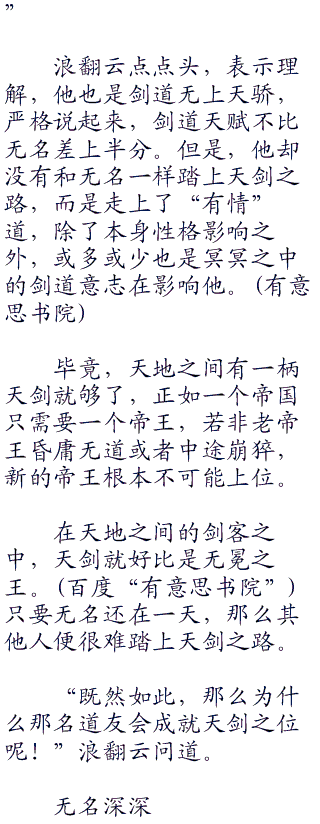 ”
浪翻云点点头，表示理
解，他也是剑道无上天骄，
严格说起来，剑道天赋不比
无名差上半分。但是，他却
没有和无名一样踏上天剑之
路，而是走上了“有情”
道，除了本身性格影响之
外，或多或少也是冥冥之中
的剑道意志在影响他。(有意
思书院)
毕竟，天地之间有一柄
天剑就够了，正如一个帝国
只需要一个帝王，若非老帝
王昏庸无道或者中途崩猝，
新的帝王根本不可能上位。
在天地之间的剑客之
中，天剑就好比是无冕之
王。(百度“有意思书院”)
只要无名还在一天，那么其
他人便很难踏上天剑之路。
“既然如此，那么为什
么那名道友会成就天剑之位
呢！”浪翻云问道。
无名深深